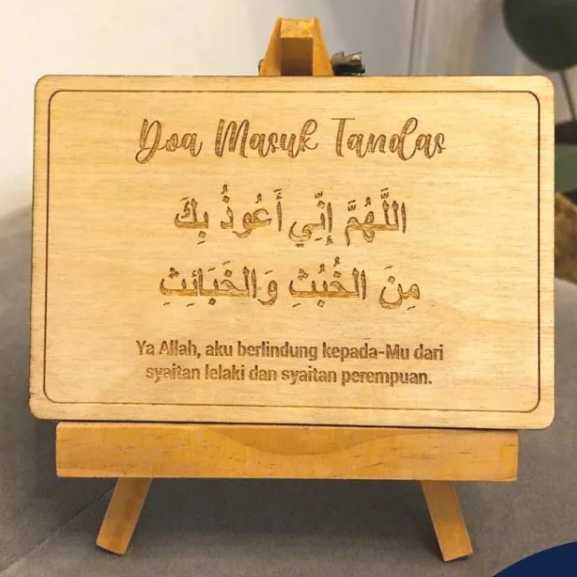 Doa Masuk Tandas
اللَّهُمَّ إِنِّي أَعُوذُ بِكَ
مِنَ الْخُبُثِ وَالْخَبَائِثِ
Ya Allah, aku berlindung kepada-Mu dari
syaitan lelaki dan syaitan perempuan.